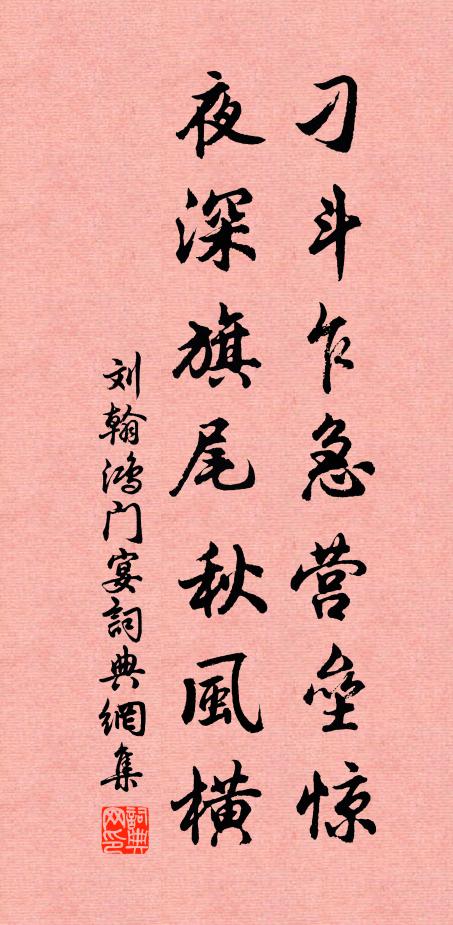 刁斗乍急营垒惊
夜深旗尾秋風横
刘翰鸿门宴詞典網集
詞典网印